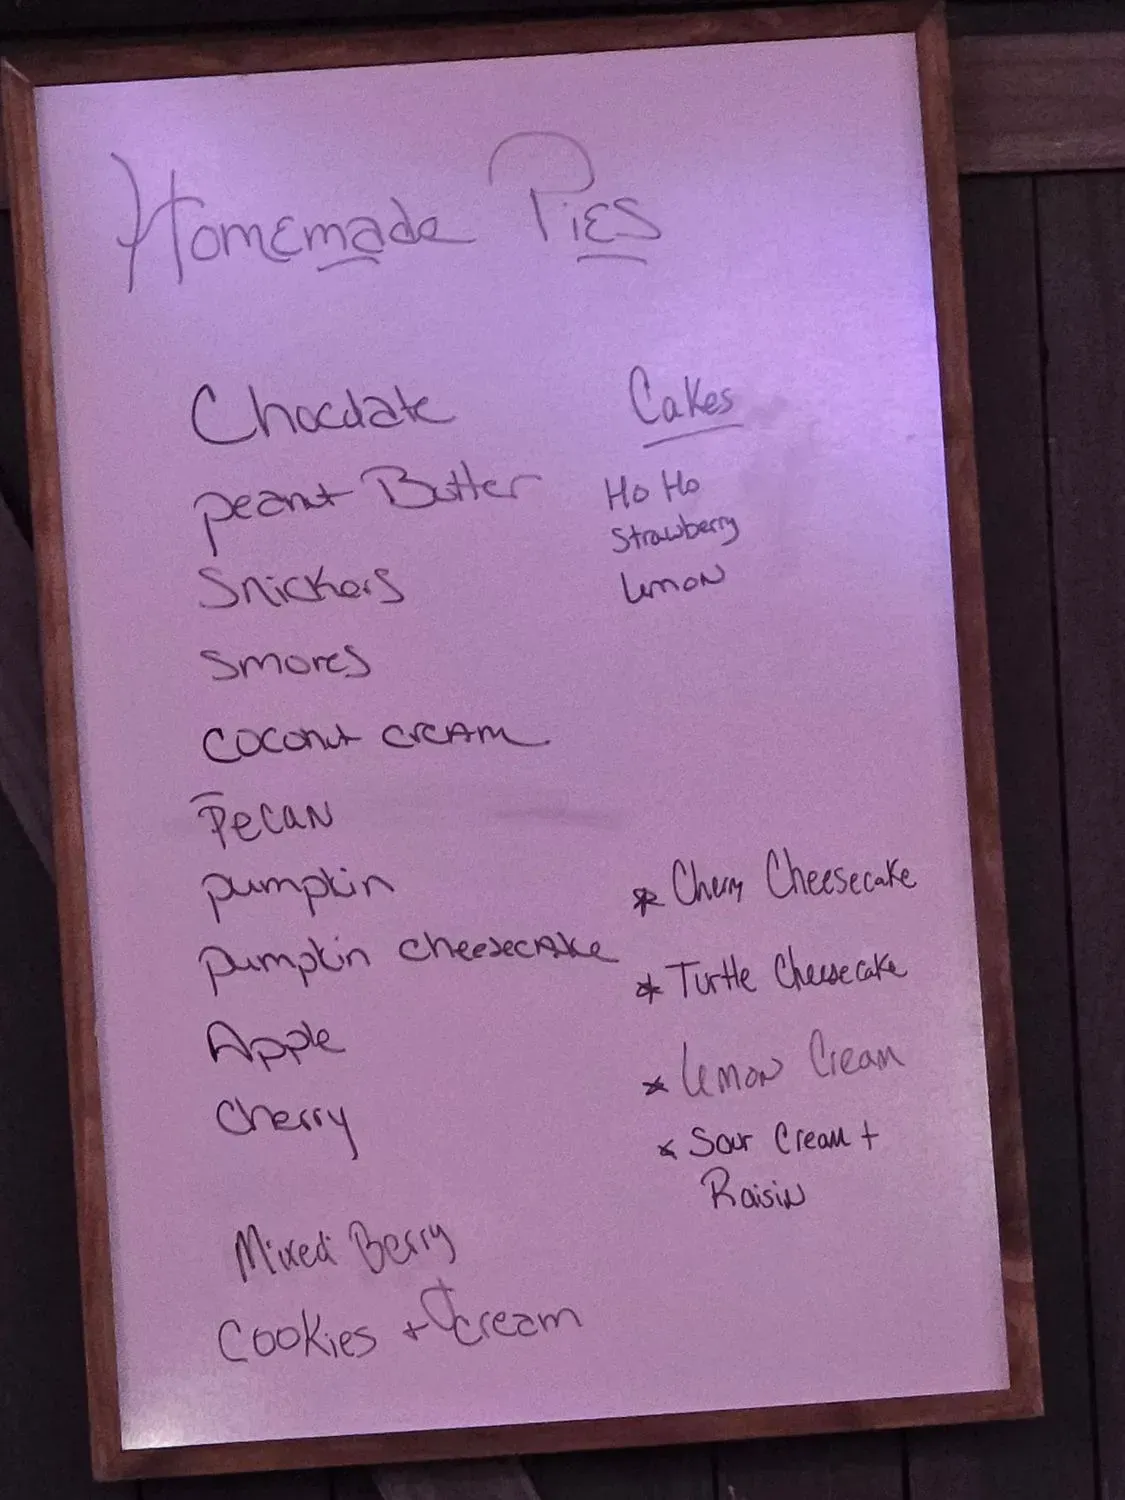 Homemade Pies
Chocolate
peanut Butter
Snickers
smores
coconut cream
Pecan
pumpkin
pumpkin cheesecake
Apple
Cherry
Mixed Berry
Cookies + cream
Cakes
Ho Ho
Strawberry
Lemon
* Cherry Cheesecake
* Turtle Cheesecake
* Lemon Cream
* Sour Cream +
Raisin